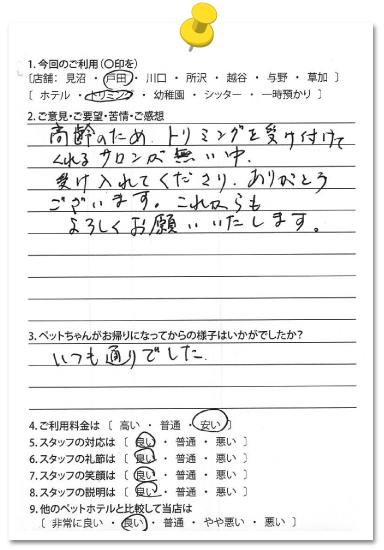 1. 今回のご利用(○印を)
〔店舗： 見沼 ・ 戸田 ・ 川口 ・ 所沢 ・ 越谷 ・ 与野 ・ 草加 〕
〔 ホテル ・ トリミング ・ 幼稚園 ・ シッター ・ 一時預かり 〕
2. ご意見・ご要望・苦情・ご感想
高齢のため、トリミングを受け付けて
くれるサロンが無い中、
受け入れてくださり、ありがとう
ございます。これからも
よろしくお願いいたします。
3. ペットちゃんがお帰りになってからの様子はいかがでしたか?
いつも通りでした。
4. ご利用料金は 〔 高い ・ 普通 ・ 安い 〕
5. スタッフの対応は 〔 良い ・ 普通 ・ 悪い 〕
6. スタッフの礼節は 〔 良い ・ 普通 ・ 悪い 〕
7. スタッフの笑顔は 〔 良い ・ 普通 ・ 悪い 〕
8. スタッフの説明は 〔 良い ・ 普通 ・ 悪い 〕
9. 他のペットホテルと比較して当店は
〔 非常に良い ・ 良い ・ 普通 ・ やや悪い ・ 悪い 〕